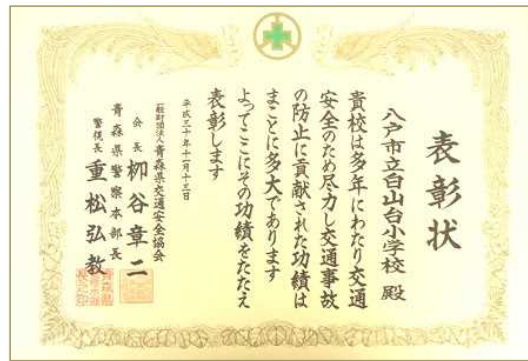 表彰状
八戸市立白山台小学校 殿
貴校は多年にわたり交通
安全のため尽力し交通事故
の防止に貢献された功績は
まことに多大であります
よってここにその功績をたたえ
表彰します
平成三十年十一月十三日
一般財団法人青森県交通安全協会
会長 柳谷章二
青森県警察本部長
警視長 重松弘教